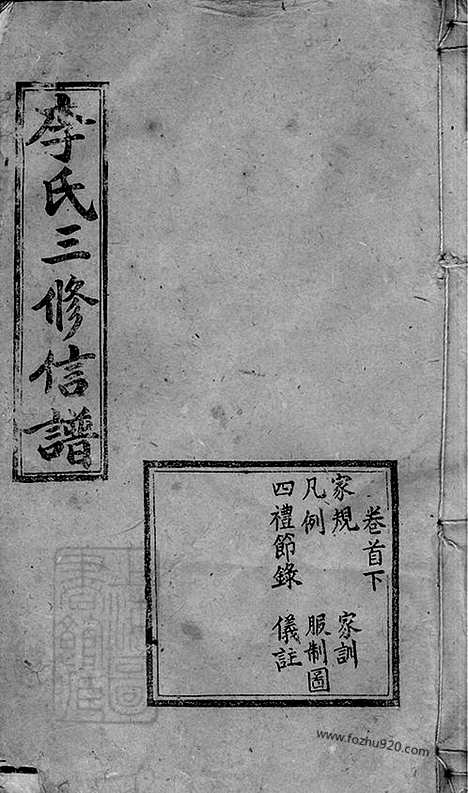 李氏三修信譜
卷首下
家規 家訓
凡例 服制圖
四禮節錄 儀註
www.fozhu920.com